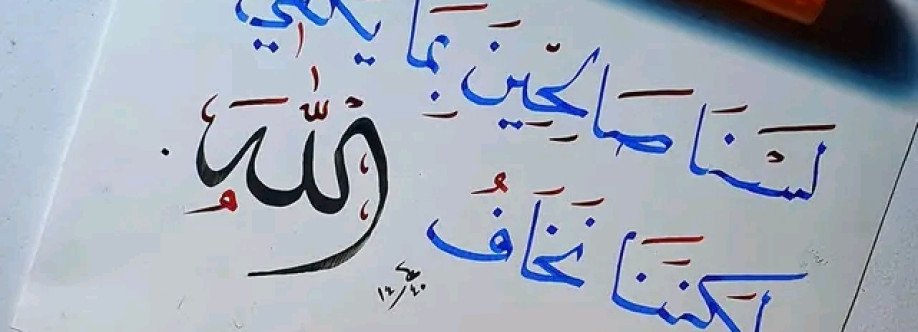 لَسْنَا صَالِحِينَ بِمَا يَكْفِي
لَكِنَّنَا نَخَافُ اللَّهَ